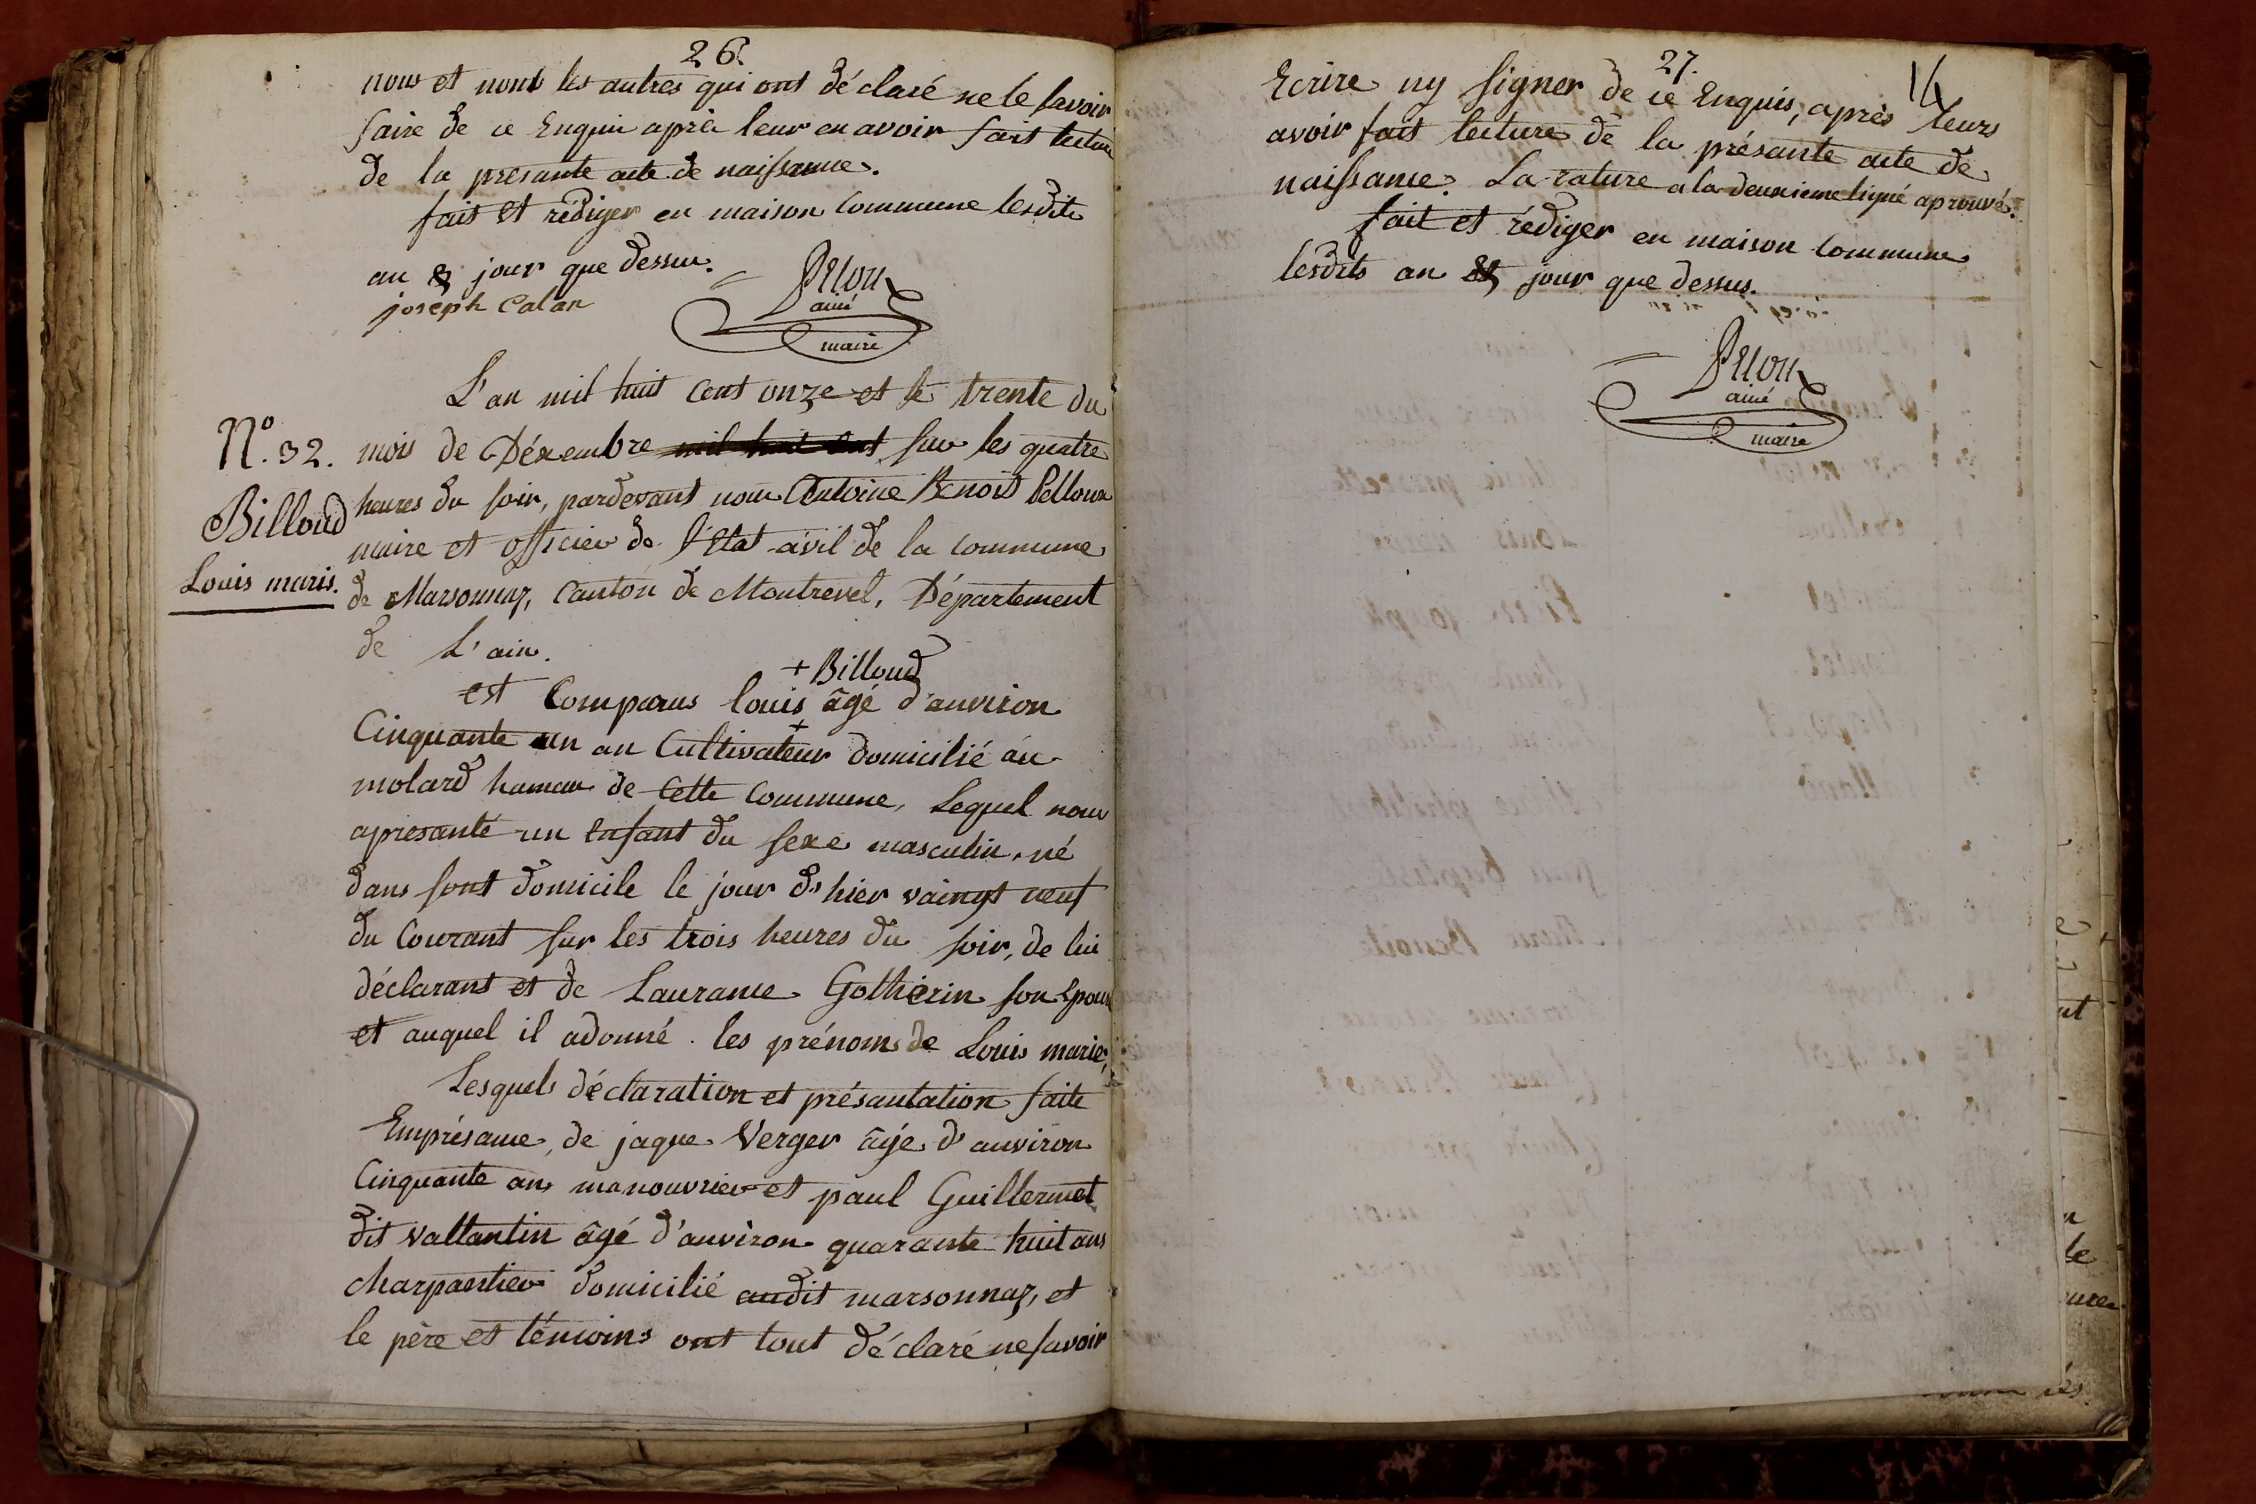 26.
nous et nont les autres qui ont déclaré ne le savoir
faire de ce Enquis après leur en avoir fait lecture
de la presante acte de naissance.
fait et rédiger en maison Commune lesdits
an & jour que dessus.
joseph Calan
Pelou
ainé
maire
L'an mil huit cent onze et le trente du
N.º 32. mois de Déxembre mil huit cent sur les quatre
Billoud
Louis marie.
heures du soir, pardevant nous Antoine Benoit Pelloux
maire et officier de l'Etat-civil de la commune
de Marsonnaz, Canton de Montrevel, Département
de L'ain.
+ Billoud
est Comparus louis + âgé d'anviron
Cinquante un an Cultivateur domicilié au
molard hamau de cette Commune, Lequel nous
apresanté un Enfant du sexe masculin, né
dans sont domicile le jour d'hier vaingt neuf
du Courant sur les trois heures du soir, de lui
déclarant et de Laurance Gotherin son Epouse
et auquel il adonné les prénoms de Louis marie,
Lesquels déclaration et présantation faite
Emprésance, de jaque Verger âgé d'anviron
Cinquante ans manouvrier et paul Guillermet
dit vallantin âgé d'anviron quarante huit ans
charpantier domicilié audit marsonnaz, et
le père et témoins ont tout déclaré ne savoir
27.
14
Ecrire ny signer de ce Enquis, après leurs
avoir fait lecture de la présante acte de
naissance. La rature a la deuxieme ligne aprouvé.
fait et rédiger en maison Commune
lesdits an & jour que dessus.
Pelou
ainé
maire